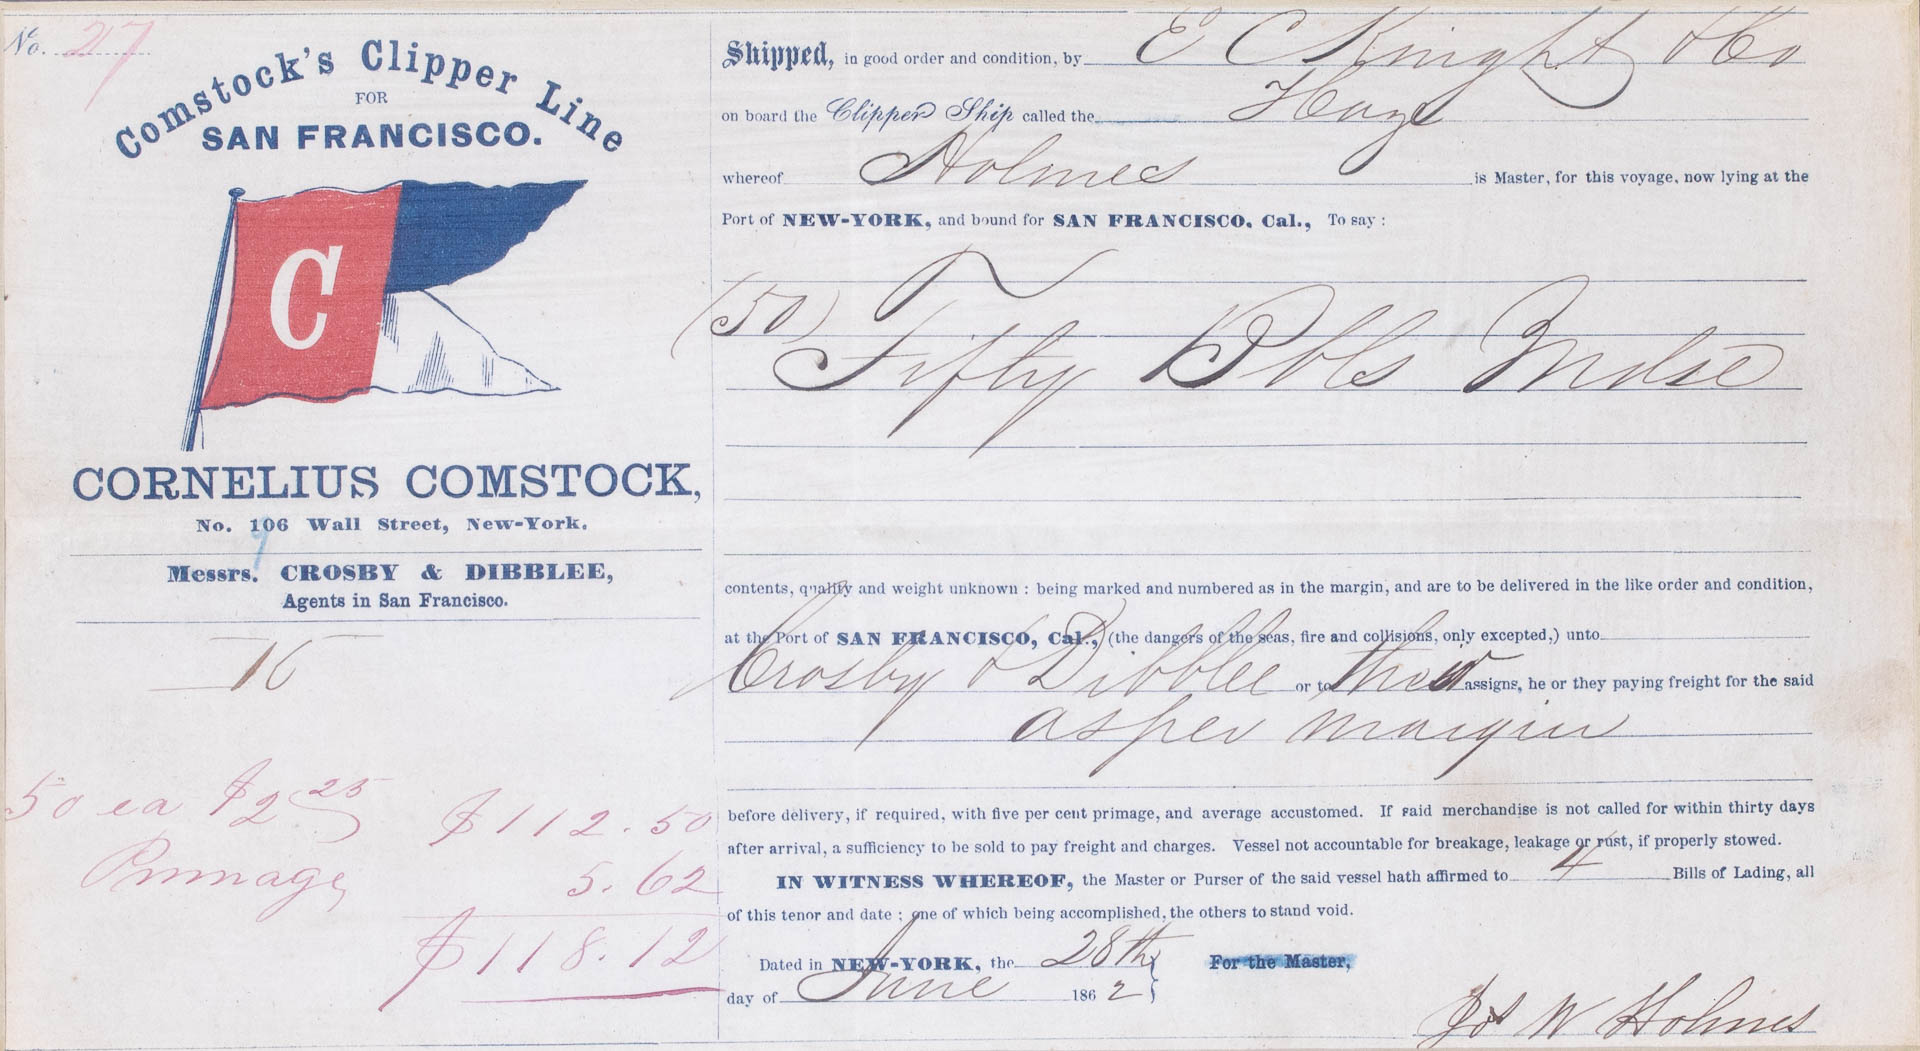 No. 27
Comstock's Clipper Line
FOR
SAN FRANCISCO.
C
CORNELIUS COMSTOCK,
No. 106 Wall Street, New-York.
9
Messrs. CROSBY & DIBBLEE,
Agents in San Francisco.
50 ea $2 25 $112.50
Primage 5.62
$118.12
Shipped, in good order and condition, by E C Knight & Co
on board the Clipper Ship called the
whereof Holmes is Master, for this voyage, now lying at the
Port of NEW-YORK, and bound for SAN FRANCISCO, Cal., To say :
(50)
Fifty Bbls Mdse
contents, quality and weight unknown : being marked and numbered as in the margin, and are to be delivered in the like order and condition,
at the Port of SAN FRANCISCO, Cal., (the dangers of the seas, fire and collisions, only excepted,) unto
Crosby & Dibblee or to their assigns, he or they paying freight for the said
as per margin
before delivery, if required, with five per cent primage, and average accustomed. If said merchandise is not called for within thirty days
after arrival, a sufficiency to be sold to pay freight and charges. Vessel not accountable for breakage, leakage or rust, if properly stowed.
IN WITNESS WHEREOF, the Master or Purser of the said vessel hath affirmed to 4 Bills of Lading, all
of this tenor and date ; one of which being accomplished, the others to stand void.
Dated in NEW-YORK, the 28th For the Master,
day of June 1862
Jos W Holmes